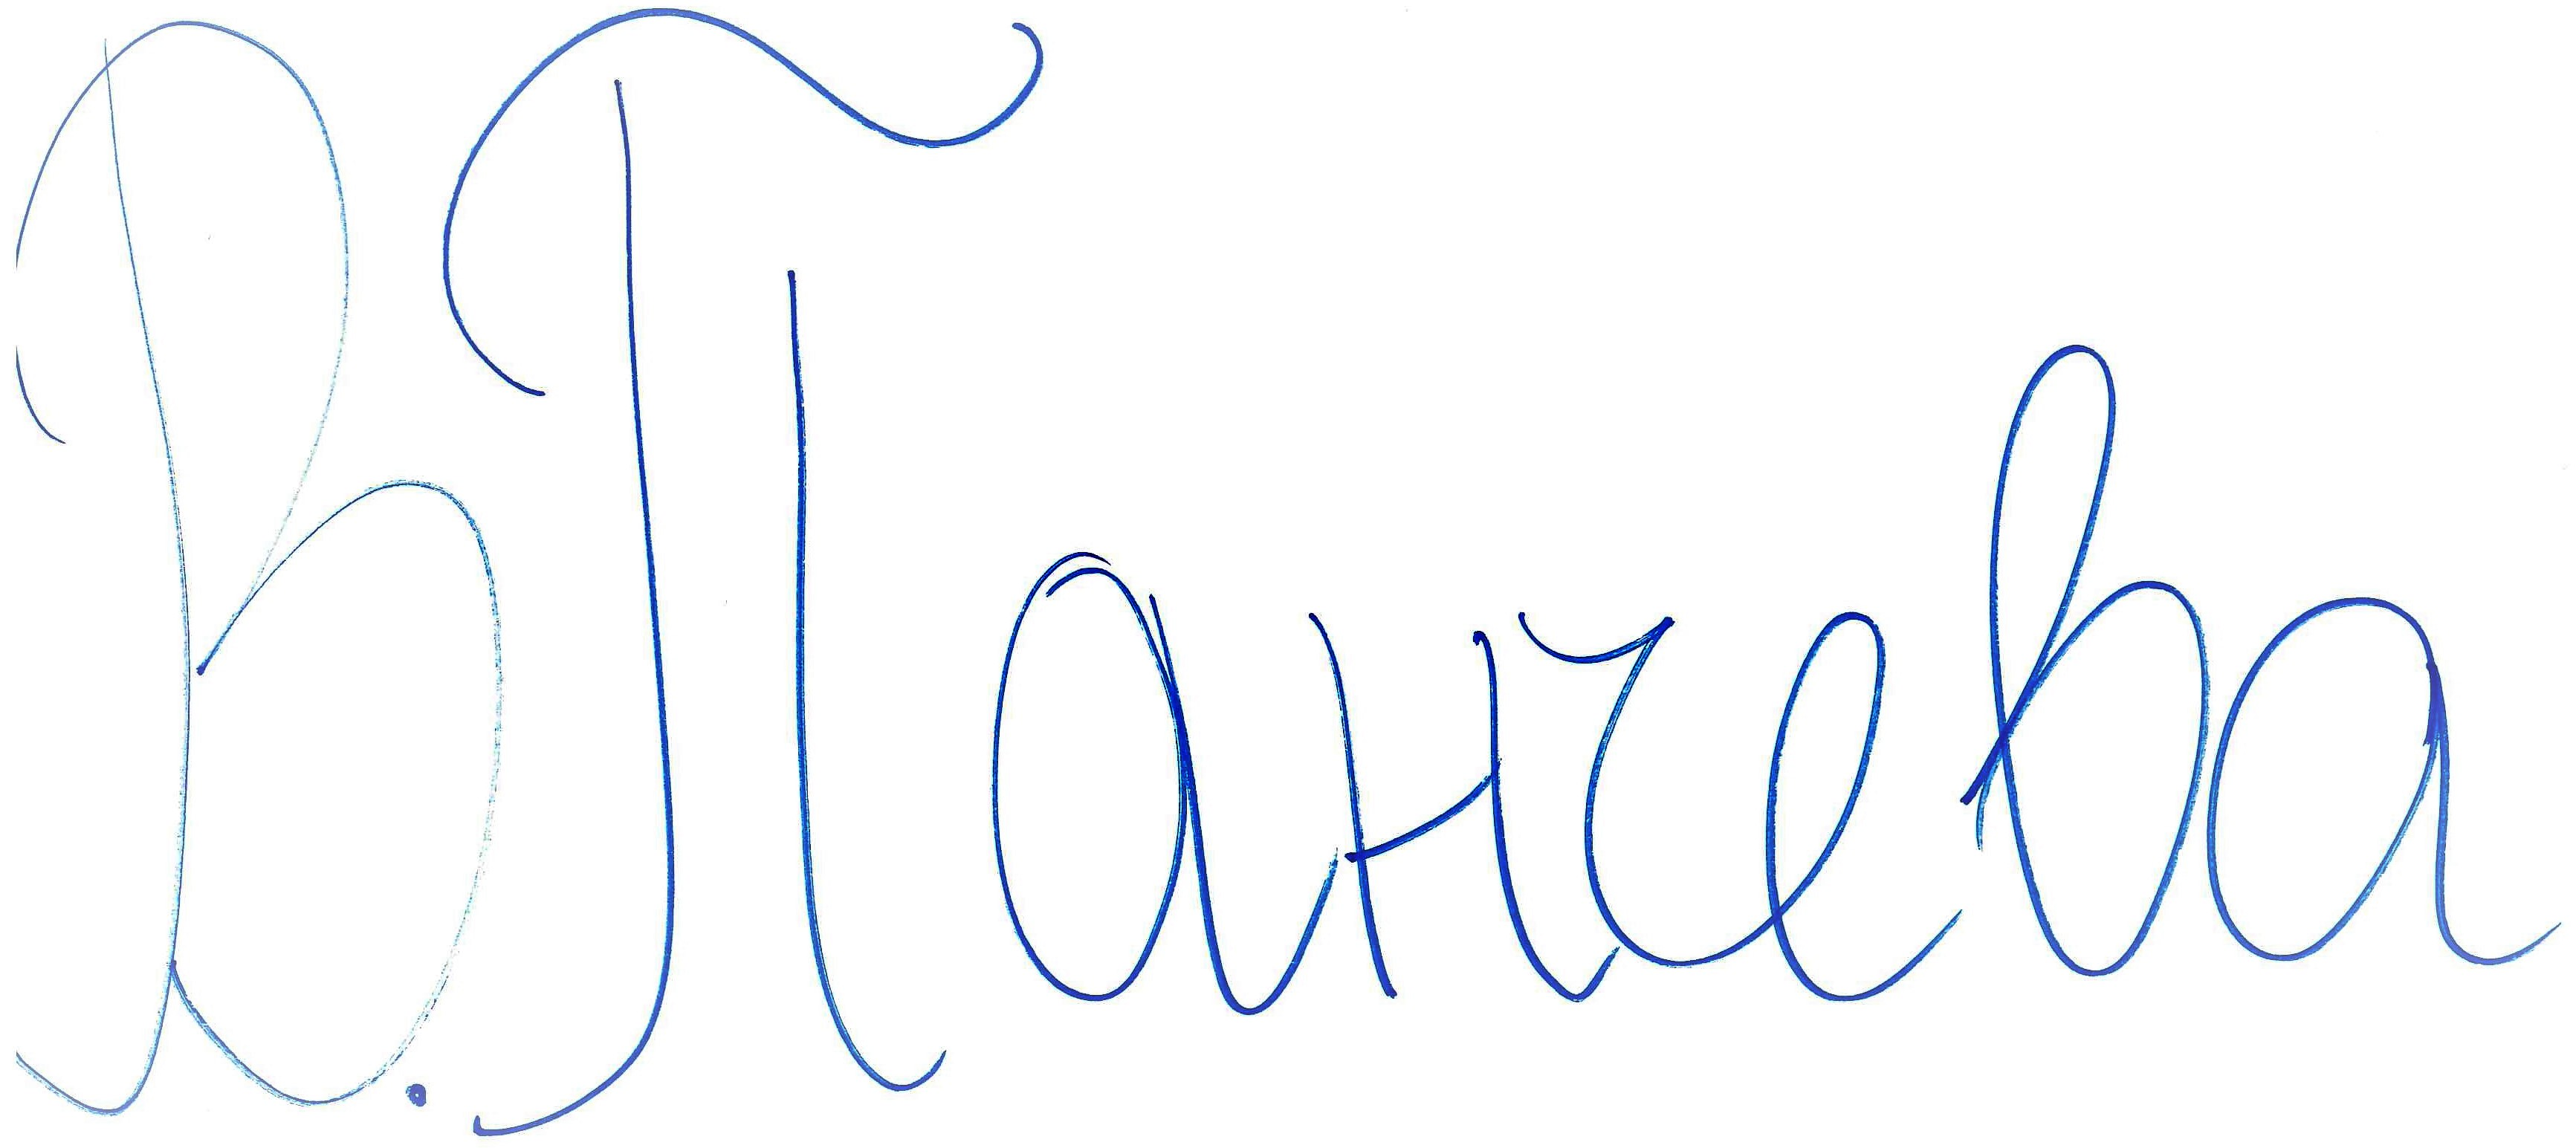 В.Панчева